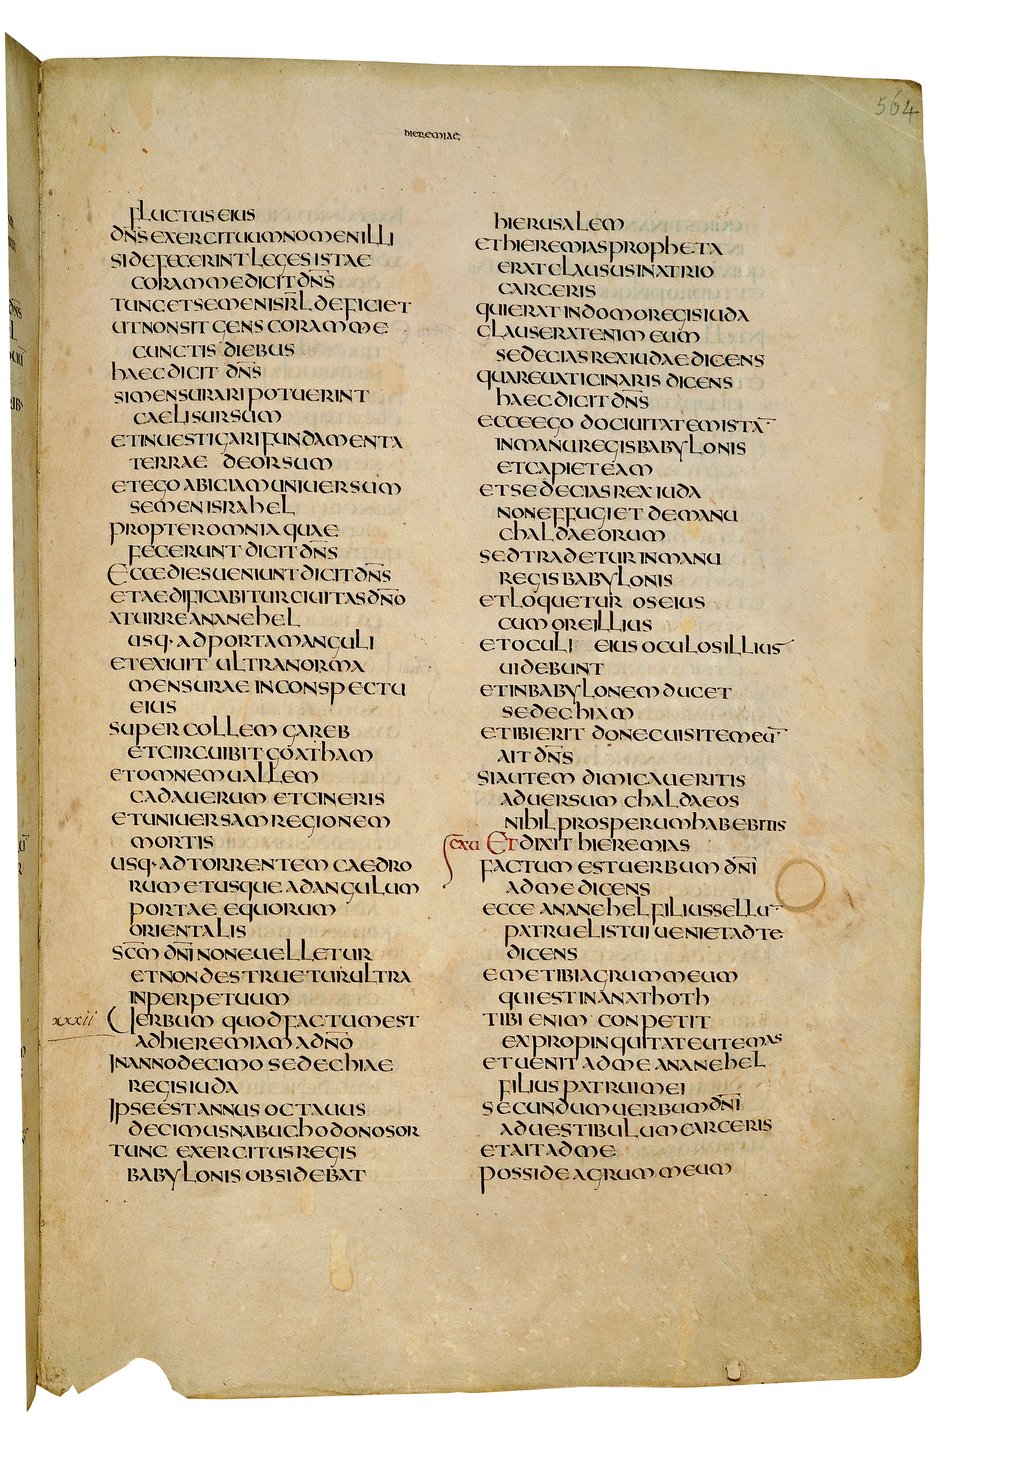 564
hieremiae
fluctus eius
dn̄s exercituum nomen illi
si defecerint leges istae
coram me dicit dn̄s
tunc et semen isrl̄ deficiet
ut non sit gens coram me
cunctis diebus
haec dicit dn̄s
si mensurari potuerint
caeli sursum
et inuestigari fundamenta
terrae deorsum
et ego abiciam uniuersum
semen israhel
propter omnia quae
fecerunt dicit dn̄s
Ecce dies ueniunt dicit dn̄s
et aedificabitur ciuitas dn̄o
a turre ananehel
usq· ad portam anguli
et exiuit ultra norma
mensurae in conspectu
eius
super collem gareb
et circuibit goatham
et omnem uallem
cadauerum et cineris
et uniuersam regionem
mortis
usq· ad torrentem caedro
rum et usque ad angulum
portae equorum
orientalis
sc̄m dn̄i non euelletur
et non destruetur ultra
in perpetuum
xxxii Uerbum quod factum est
ad hieremiam a dn̄o
In anno decimo sedechiae
regis iuda
Ipse est annus octauus
decimus nabuchodonosor
tunc exercitus regis
babylonis obsidebat
hierusalem
et hieremias propheta
erat clausus in atrio
carceris
qui erat in domo regis iuda
clauserat enim eum
sedecias rex iudae dicens
quare uaticinaris dicens
haec dicit dn̄s
ecce ego do ciuitatem istā
in manu regis babylonis
et capiet eam
et sedecias rex iuda
non effugiet de manu
chaldaeorum
sed tradetur in manu
regis babylonis
et loquetur os eius
cum ore illius
et oculi eius oculos illius
uidebunt
et in babylonem ducet
sedechiam
et ibi erit donec uisitem eū
ait dn̄s
si autem dimicaueritis
aduersum chaldaeos
nihil prosperum habebitis
Et dixit hieremias
factum est uerbum dn̄i
ad me dicens
ecce ananehel filius sellū
patruelis tui ueniet ad te
dicens
eme tibi agrum meum
qui est in anathoth
tibi enim conpetit
ex propinquitate ut emas
et uenit ad me ananehel
filius patrui mei
secundum uerbum dn̄i
ad uestibulum carceris
et ait ad me
posside agrum meum